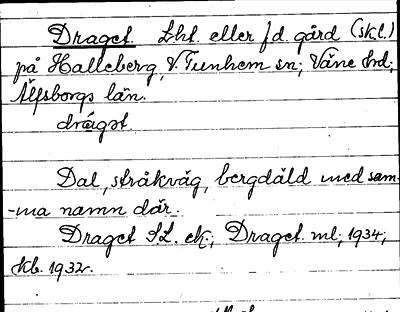 Draget. Lht. eller fd. gård (skl.)
på Halleberg, V. Tunhem sn; Väne hd;
Älfsborgs län.
drágət.
Dal, stråkväg, bergdäld med sam-
-ma namn där.
Draget SL. ek.; Draget. ml; 1934;
kb. 1932.